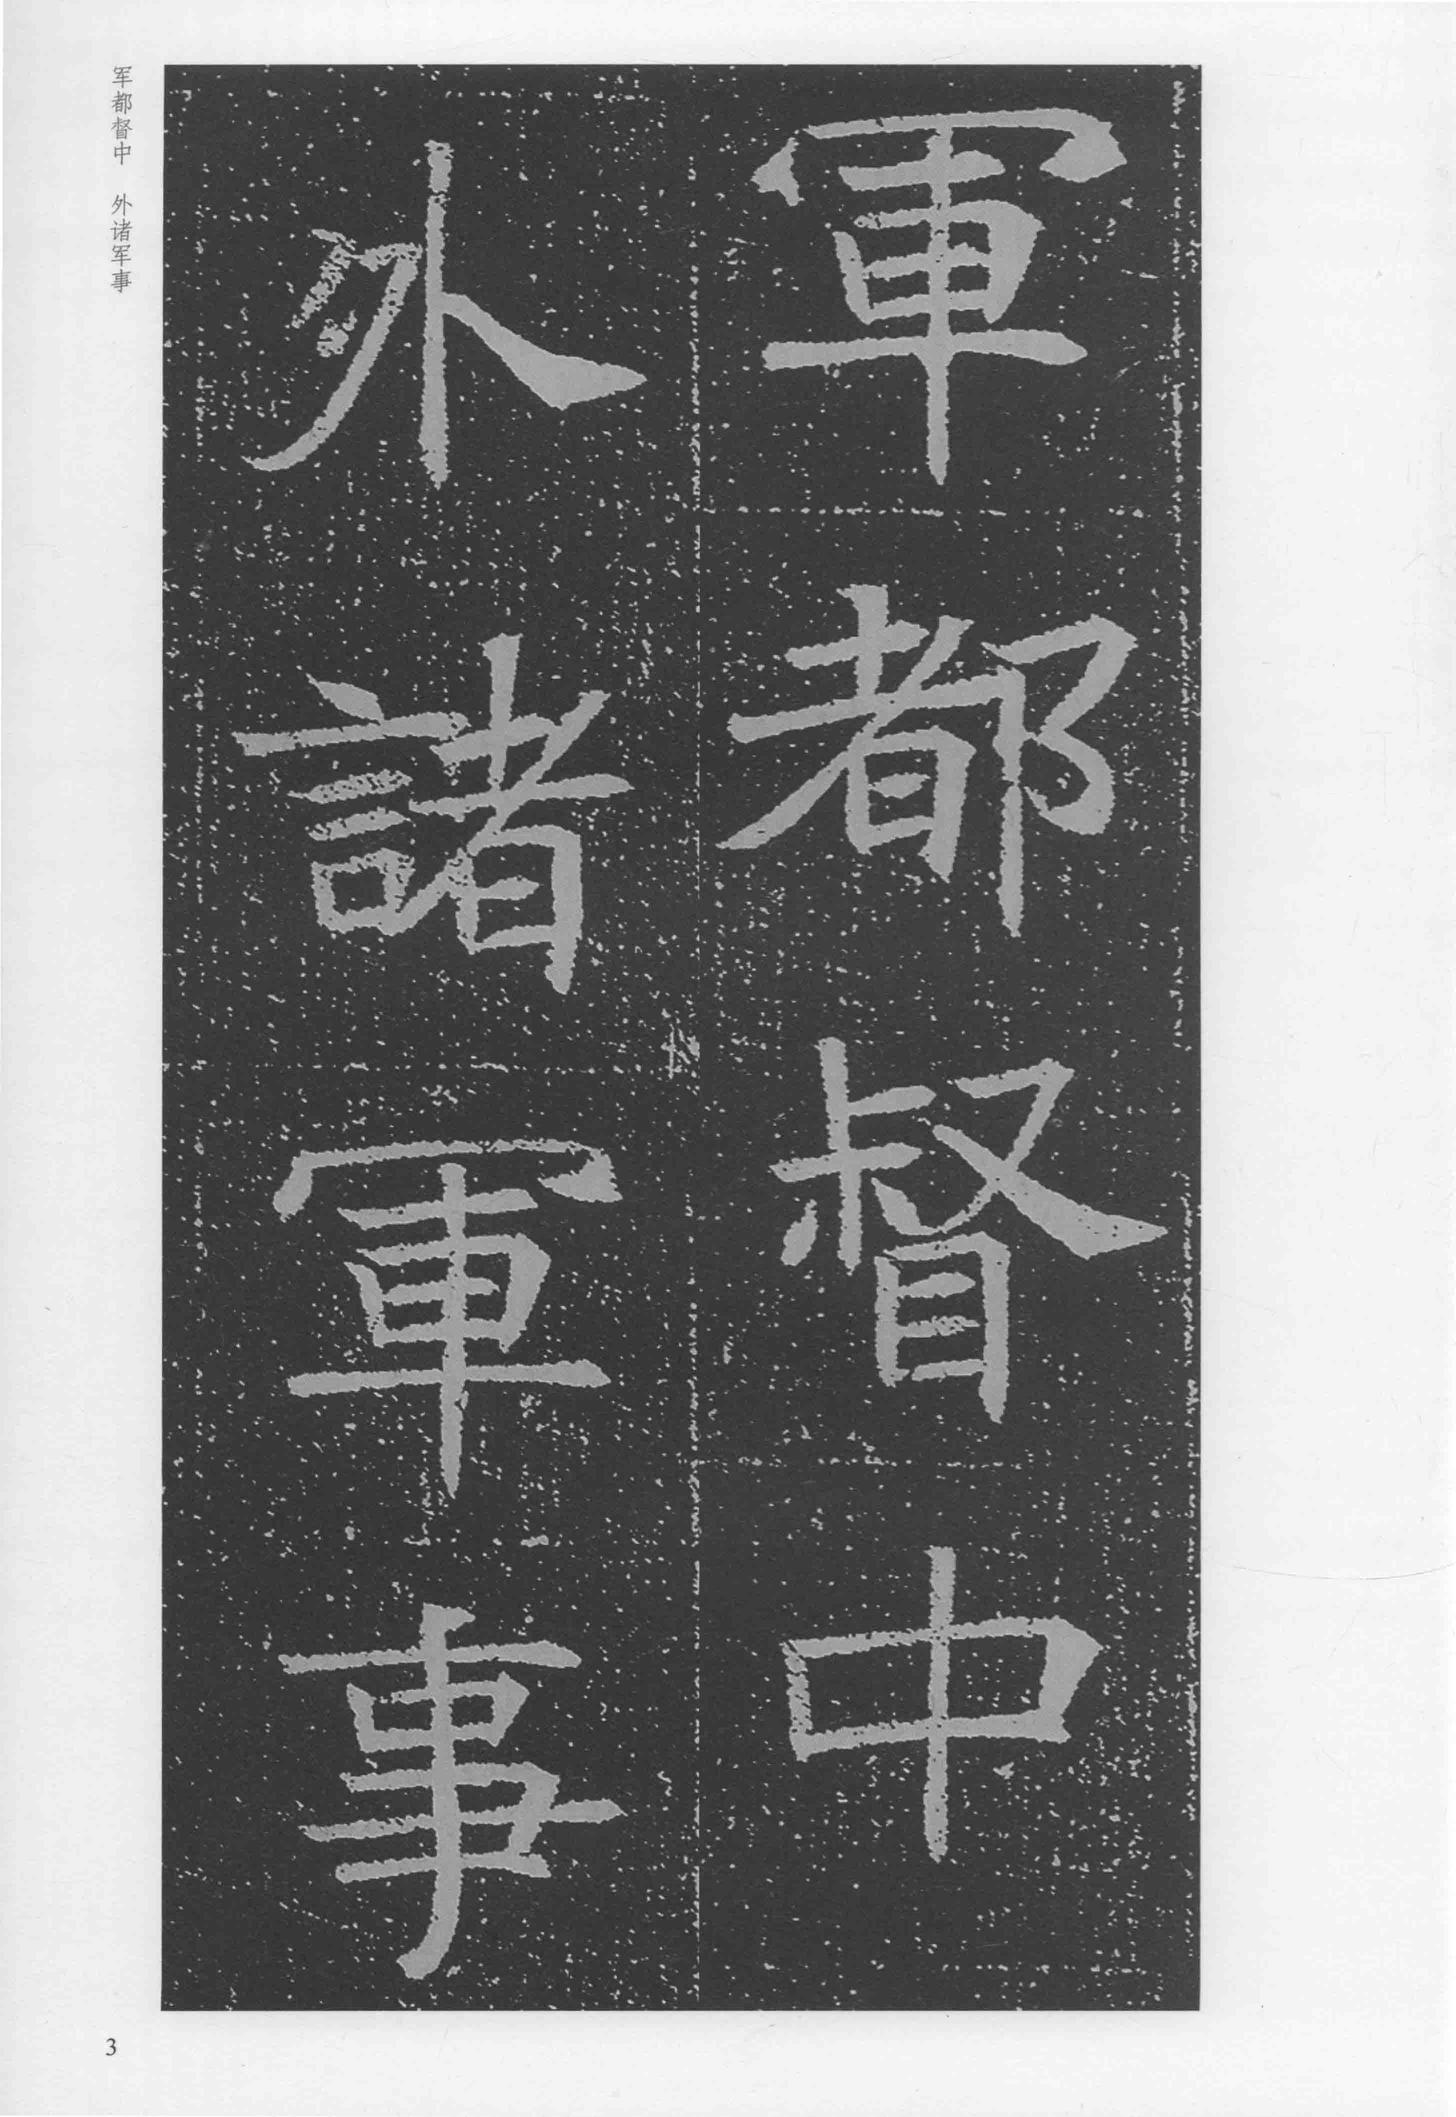 軍都督中
外諸軍事
军都督中 外诸军事
3